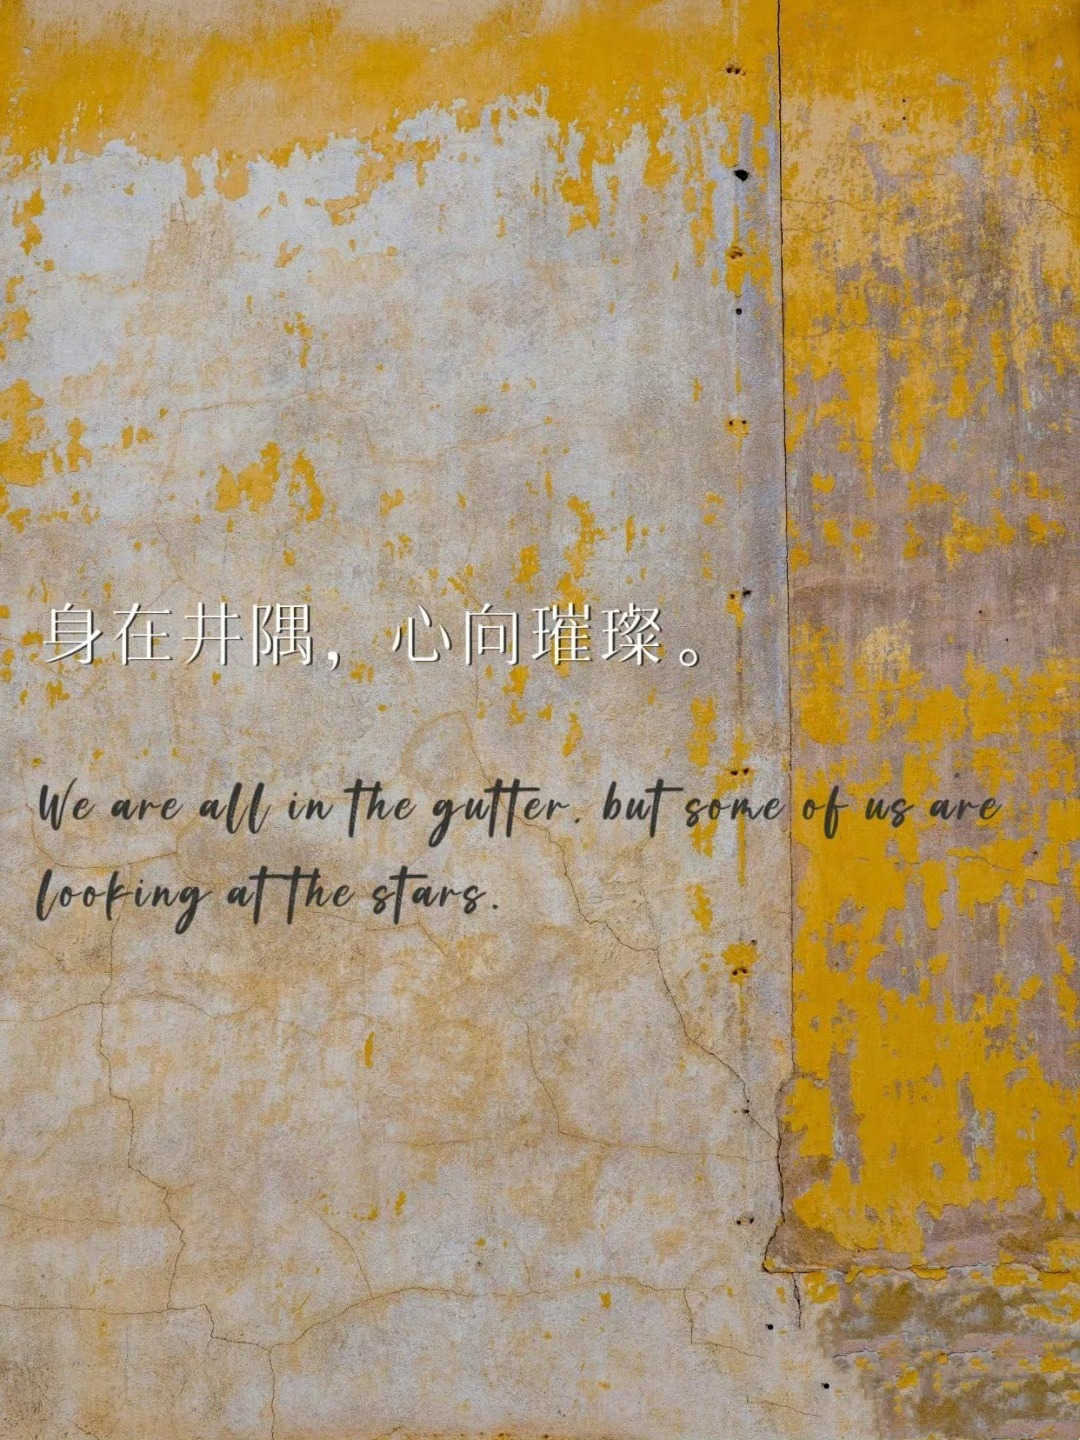 身在井隅，心向璀璨。
We are all in the gutter. but some of us are
looking at the stars.